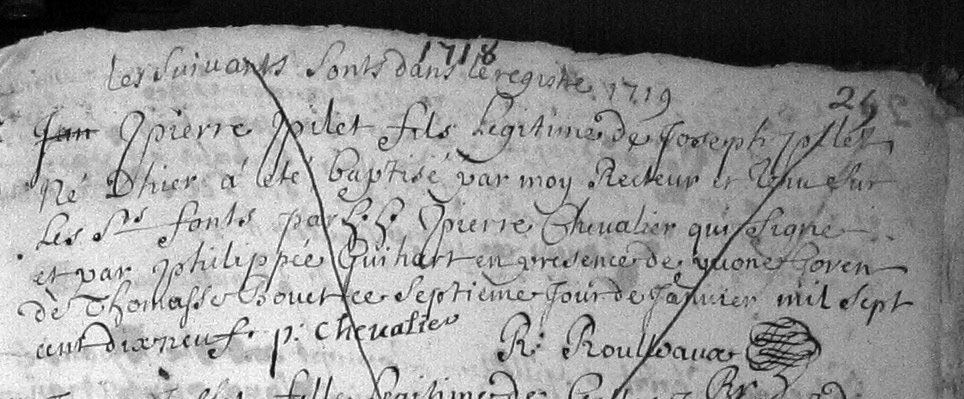 1718
Les Suivants Sonts dans le registre 1719
24
Jan Pierre Pilet fils Legitime de Joseph Pilet
Né D'hier á été baptisé par moy Recteur et tenu Sur
Les Sts fonts par h. h. Pierre Chevalier qui Signe
et par Philippée Guihart en presence de yvonet Joren
de Thomasse houet ce Septieme Jour de Janvier mil Sept
cent dix neuf. p: Chevalier R: Roullvaux
fille Legitime de